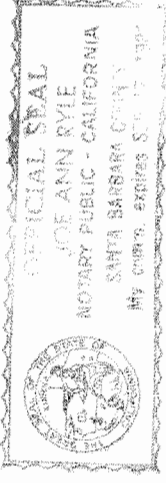 OFFICIAL SEAL
JOE ANN RYLE
NOTARY PUBLIC - CALIFORNIA
SANTA BARBARA COUNTY
My comm. expires
SEAL OF THE STATE OF